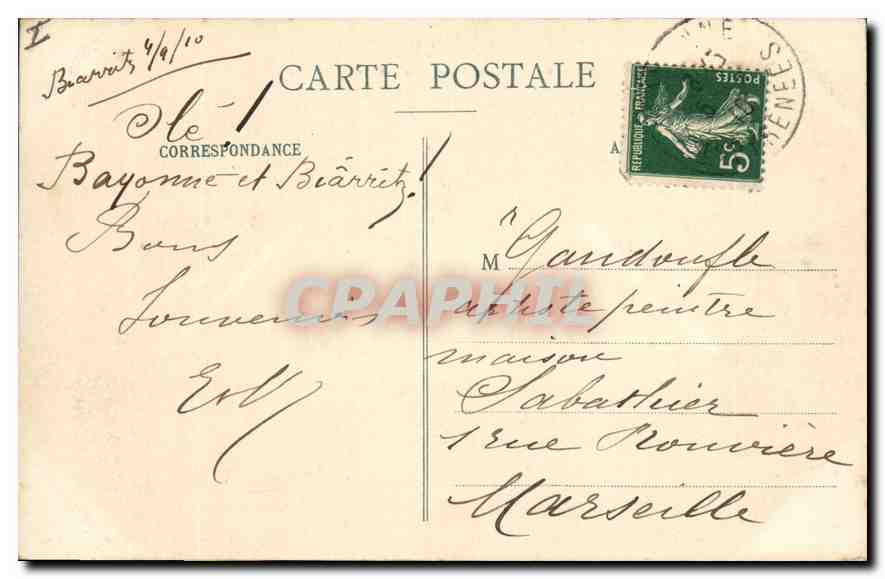 I
Biarritz 4/9/10
CARTE POSTALE
Olé!
CORRESPONDANCE
A
Bayonne et Biârritz!
Bons
Souvenirs
RÉPUBLIQUE FRANÇAISE
POSTES
5c
NNE
PCAPHIL
Mr Gandoufle
artiste peintre
maison
Sabathier
1 rue Rouvière
Marseille